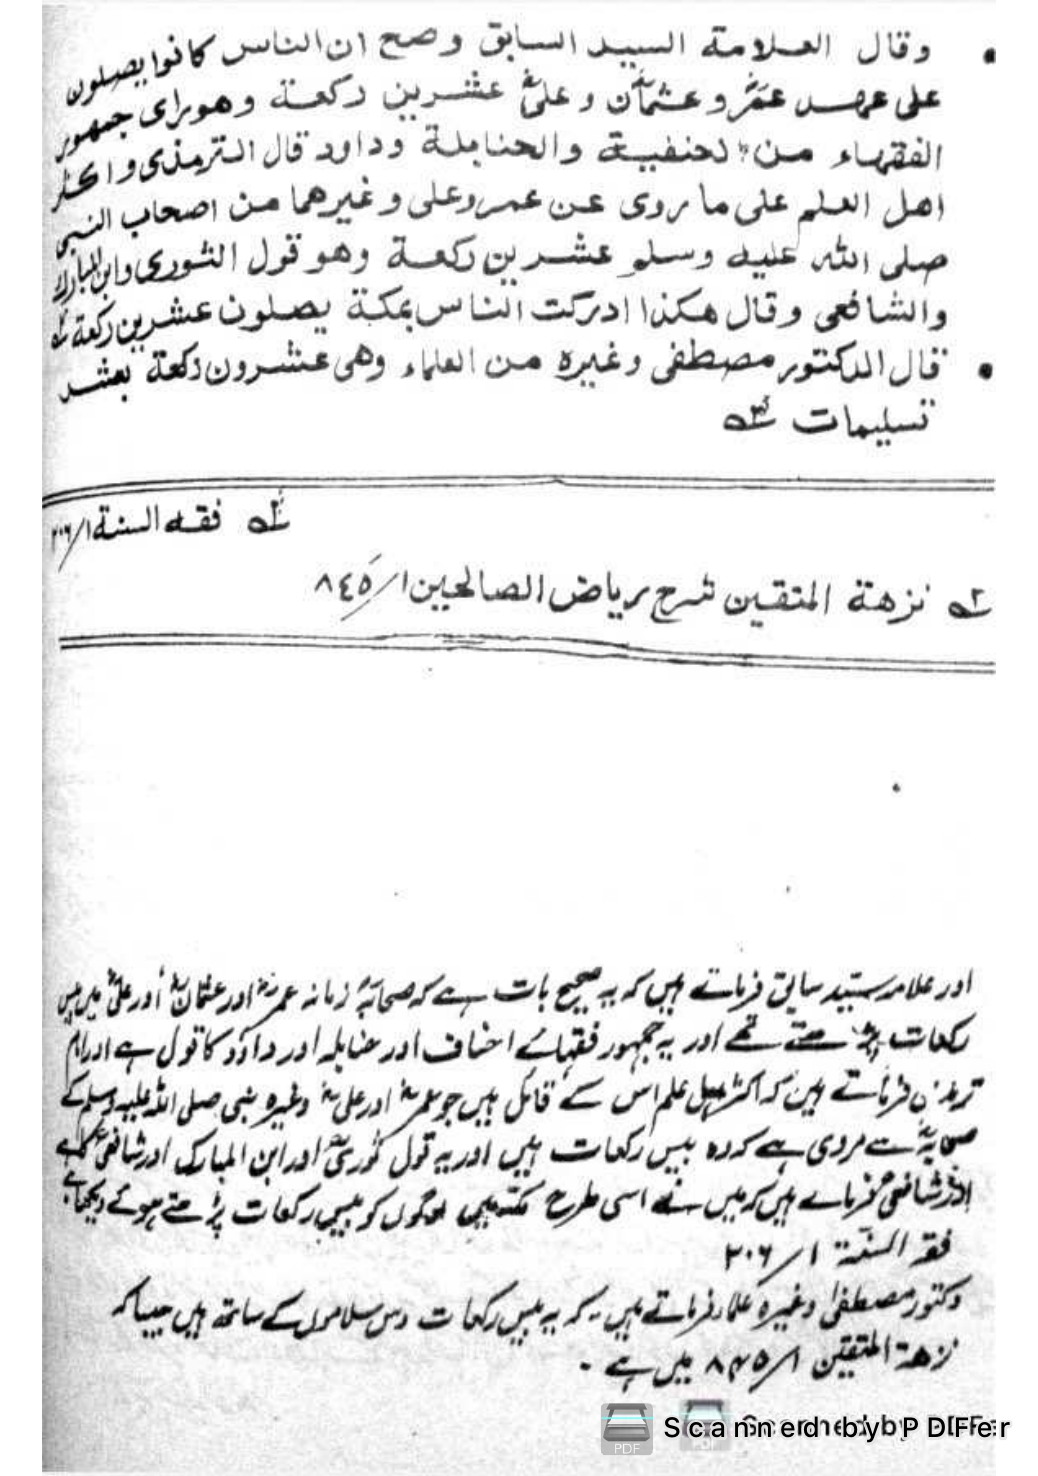 • وقال العلامة السيد السابق وصح ان الناس كانوا يصلون
على عهد عمرؓ و عثمانؓ و علىؓ عشرين ركعة وهو راى جمهور
الفقهاء من الحنفية والحنابلة وداود قال الترمذى واكثر
اهل العلم على ما روى عن عمر وعلى و غيرهما من اصحاب النبى
صلى الله عليه وسلم عشرين ركعة وهو قول الثورى وابن المبارك
والشافعى وقال هكذا ادركت الناس بمكة يصلون عشرين ركعة
• قال الدكتور مصطفى وغيره من العلماء وهى عشرون ركعة بعشر
تسليمات
فقه السنة ٢٠٦/١
نزهة المتقين شرح رياض الصالحين ٨٤٥/١
اور علامہ سید سابق فرماتے ہیں کہ یہ صحیح بات ہے کہ صحابہؓ زمانہ عمرؓ اور عثمانؓ اور علیؓ میں بیس
رکعات پڑھتے تھے اور یہ جمہور فقہائے احناف اور حنابلہ اور داؤد کا قول ہے اور امام
ترمذی فرماتے ہیں کہ اکثر اہل علم اس کے قائل ہیں جو عمرؓ اور علیؓ وغیرہ نبی صلی اللہ علیہ وسلم کے
صحابہؓ سے مروی ہے کہ وہ بیس رکعات ہیں اور یہ قول ثوریؒ اور ابن المبارک اور شافعیؒ کا ہے
اور شافعیؒ فرماتے ہیں کہ میں نے اسی طرح مکہ میں لوگوں کو بیس رکعات پڑھتے ہوئے دیکھا ہے
فقہ السنۃ ۱/۲۰۶
دکتور مصطفیٰ وغیرہ علماء فرماتے ہیں کہ یہ بیس رکعات دس سلاموں کے ساتھ ہیں جیسا کہ
نزھۃ المتقین ۱/۸۴۵ میں ہے ۔
Scanned by PDFer